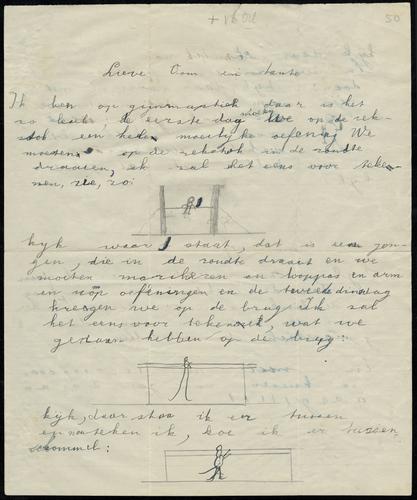 50
Lieve Oom en tante
Ik ben op gimnastiek daar is het
zo leuk: de eerste dag moesten we op de rek-
stok een hele moeilijke oefening We
moesten op de rekstok in de rondte
draaien, ik zal het eens voor teke-
nen, zie, zo:
kijk waar 1 staat, dat is een jon-
gen, die in de rondte draait en we
moeten marcheren en looppas en arm
en oefeningen en de tweede dinsdag
kregen we op de brug Ik zal
het eens voor tekenen, wat we
gedaan hebben op de brug:
kijk, daar sta ik er tussen
en nu teken ik, hoe ik er tussen
schommel: